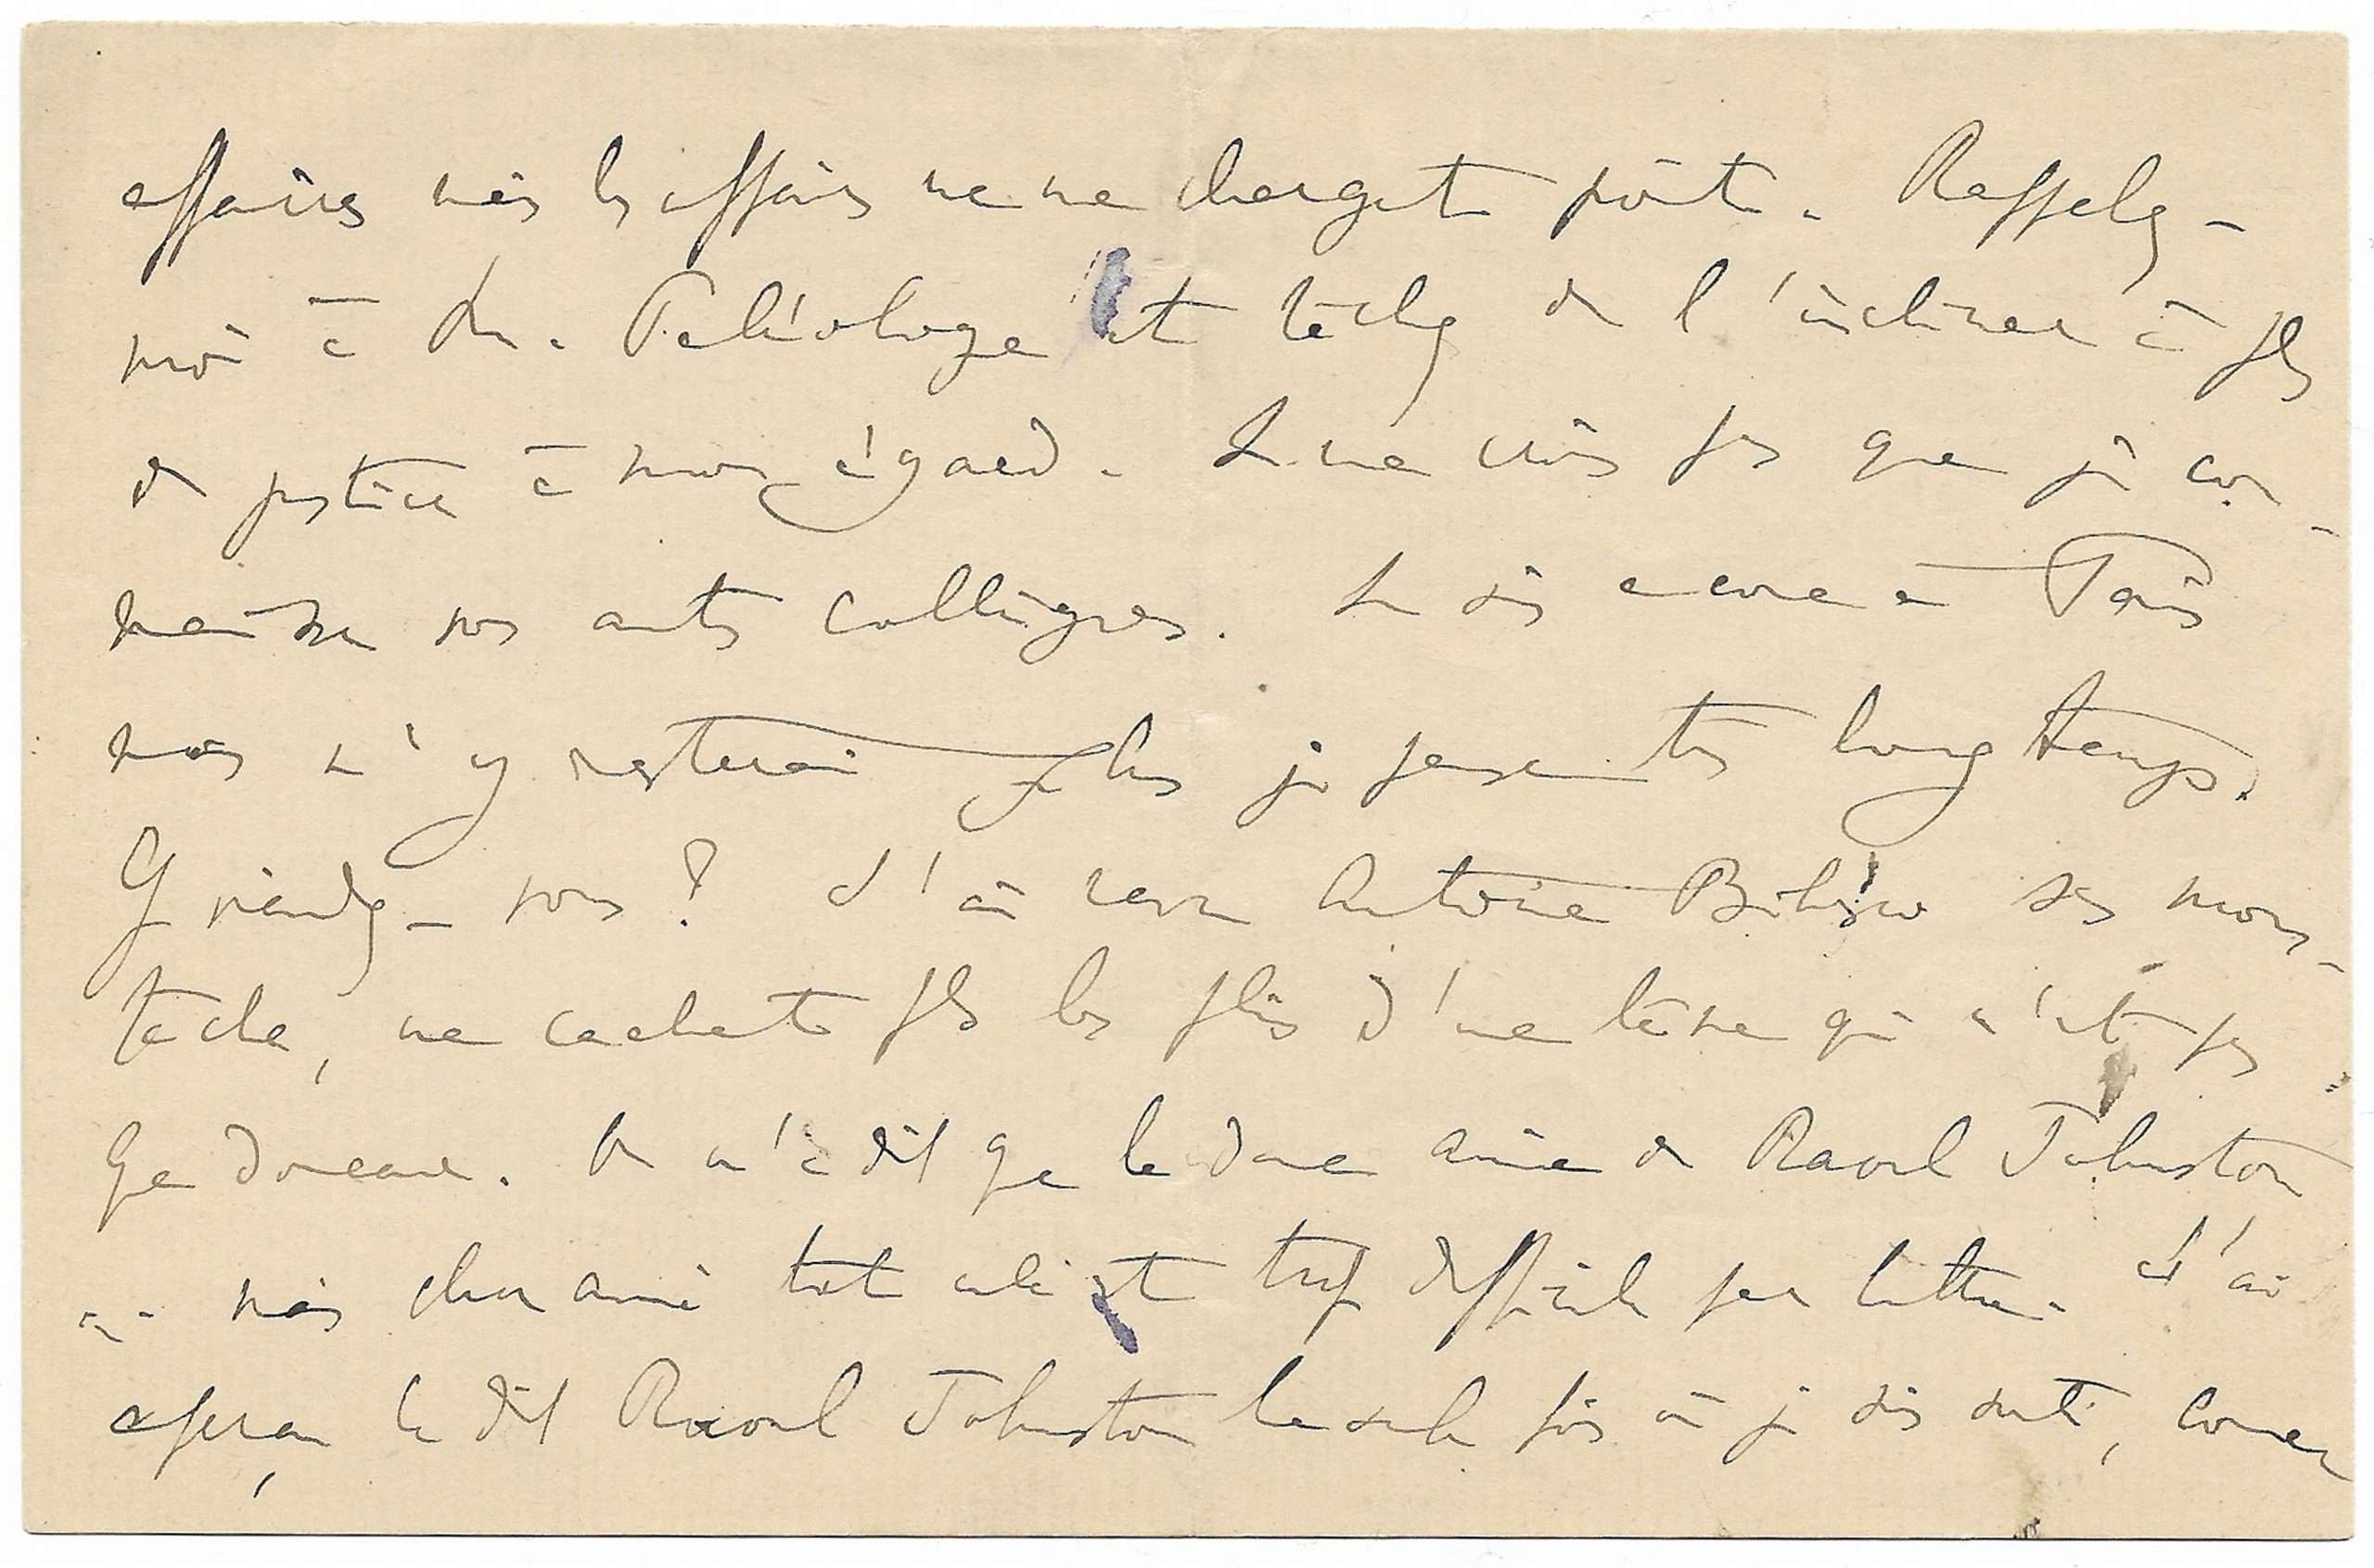 affaires mais les affaires ne me chargent point. Rappelez-
moi à M. Paléologue et tâchez de l'incliner à plus
de justice à mon égard. Je ne crois pas que je con-
naisse vos autres collègues. Je suis encore à Paris
mais n'y resterai plus je pense très longtemps.
Y viendrez-vous ? J'ai revu Antoine Bibesco ses mous-
taches, ne cachent plus les plis d'une lèvre qui n'est pas
que douceur. On m'a dit que la dame amie de Raoul Johnston
... mais cher ami tout cela est trop difficile par lettre. J'ai
aperçu le dit Raoul Johnston la seule fois où je suis sorti,